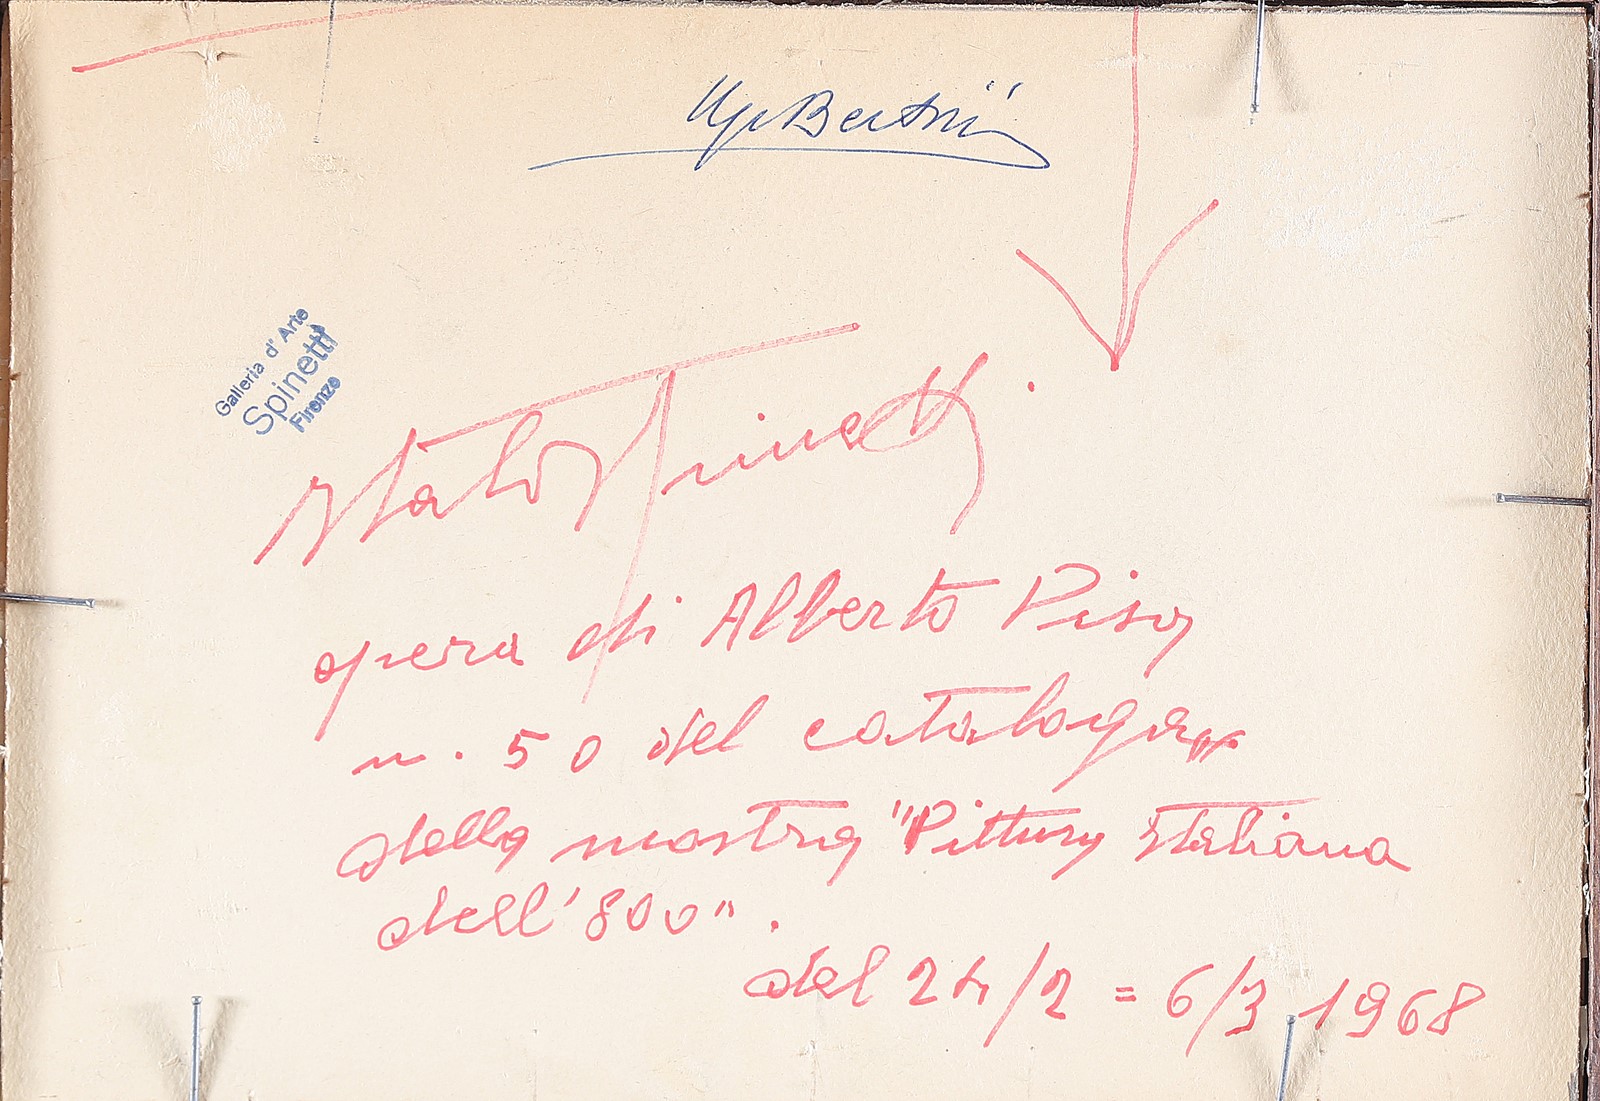 Ugo Bertini
Galleria d'Arte
Spinetti
Firenze
Italo Spinetti.
opera di Alberto Pisa
n. 50 del catalogo
della mostra "Pittura Italiana
dell'800".
del 24/2 = 6/3 1968